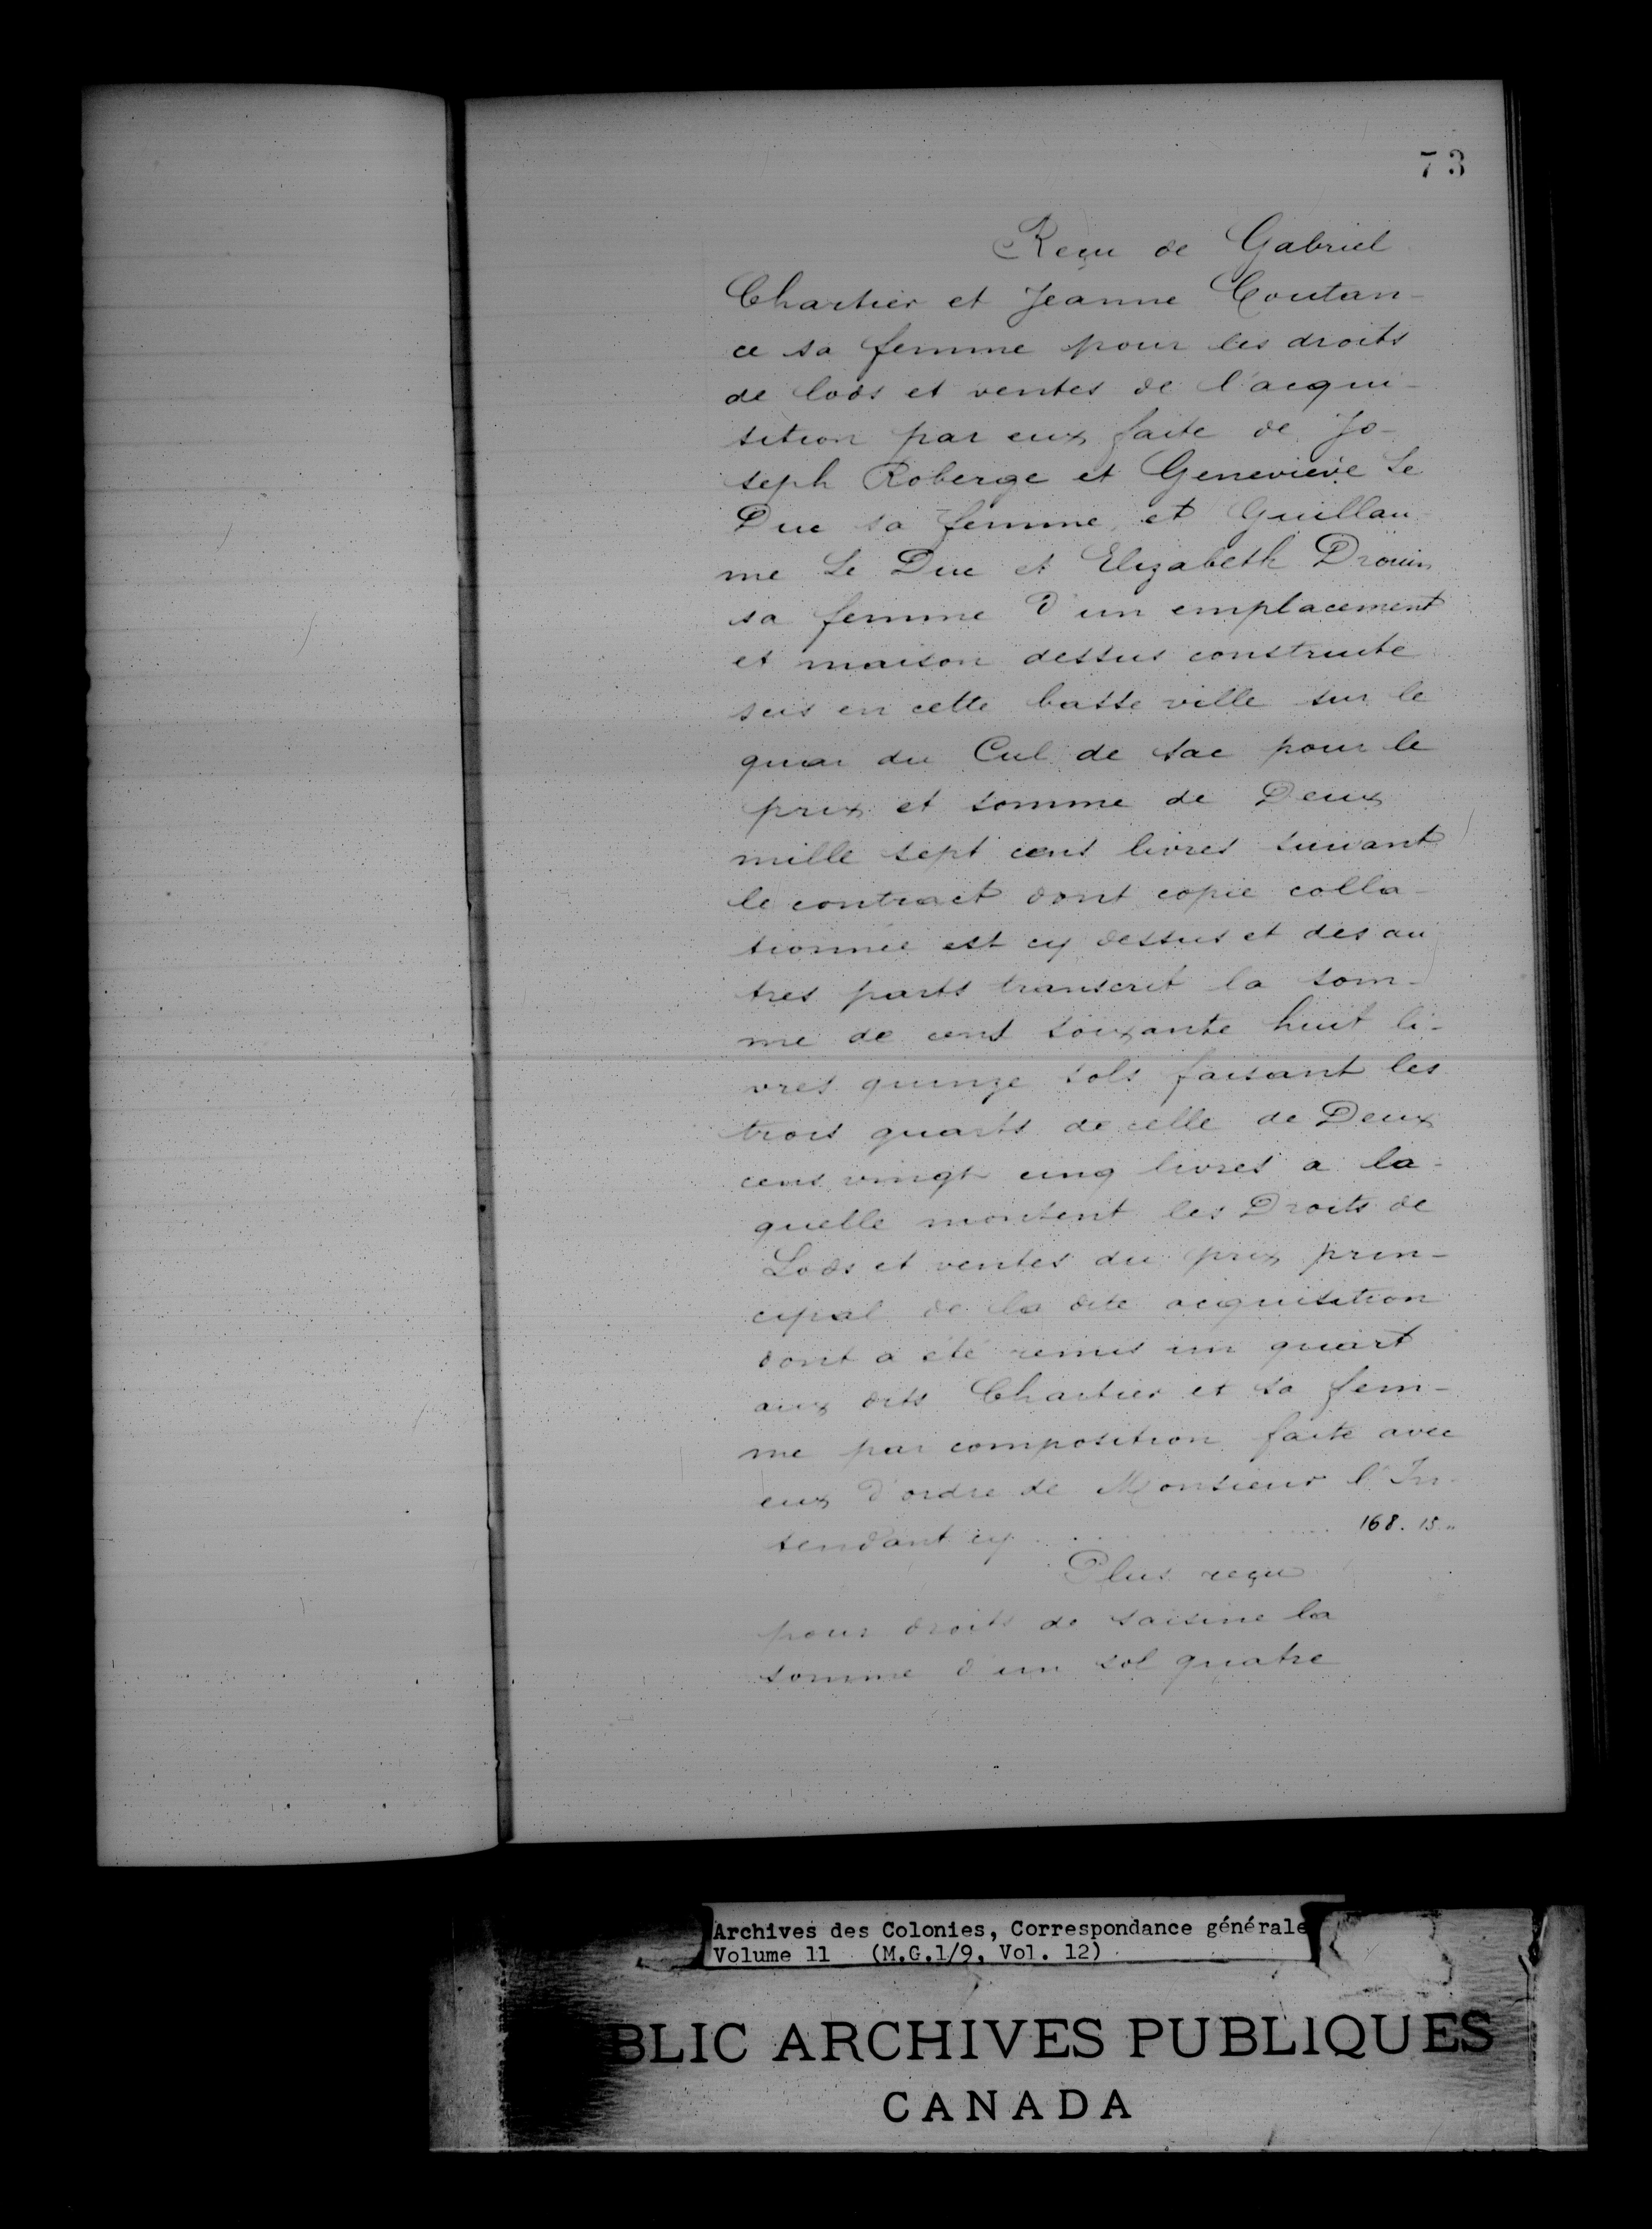 73
Reçu de Gabriel
Chartier et Jeanne Coutan-
ce sa femme pour les droits
de lods et ventes de l'acqui-
sition par eux faite de Jo-
seph Roberge et Geneviève Le
Duc sa femme, et Guillau
me Le Duc et Elizabeth Drouin
sa femme d'un emplacement
et maison dessus construite
scis en cette basse ville sur le
quai du Cul de sac pour le
prix et somme de Deux
mille sept cens livres suivant
le contract dont copie colla-
tionnée est cy dessus et des au
tres parts transcrit la som-
me de cent soixante huit li-
vres quinze sols faisant les
trois quarts de celle de Deux
cens vingt cinq livres a la-
quelle montent les Droits de
Lods et ventes du prix prin-
cipal de la dite acquisition
dont a été remis un quart
aux dits Chartier et sa fem-
me par composition faite avec
eux d'ordre de Monsieur l'In-
tendant cy ... 168. 15 "
Plus reçu
pour droits de saisine la
somme d'un sol quatre
Archives des Colonies, Correspondance générale
Volume 11 (M.G.1/9, Vol. 12)
BLIC ARCHIVES PUBLIQUES
CANADA